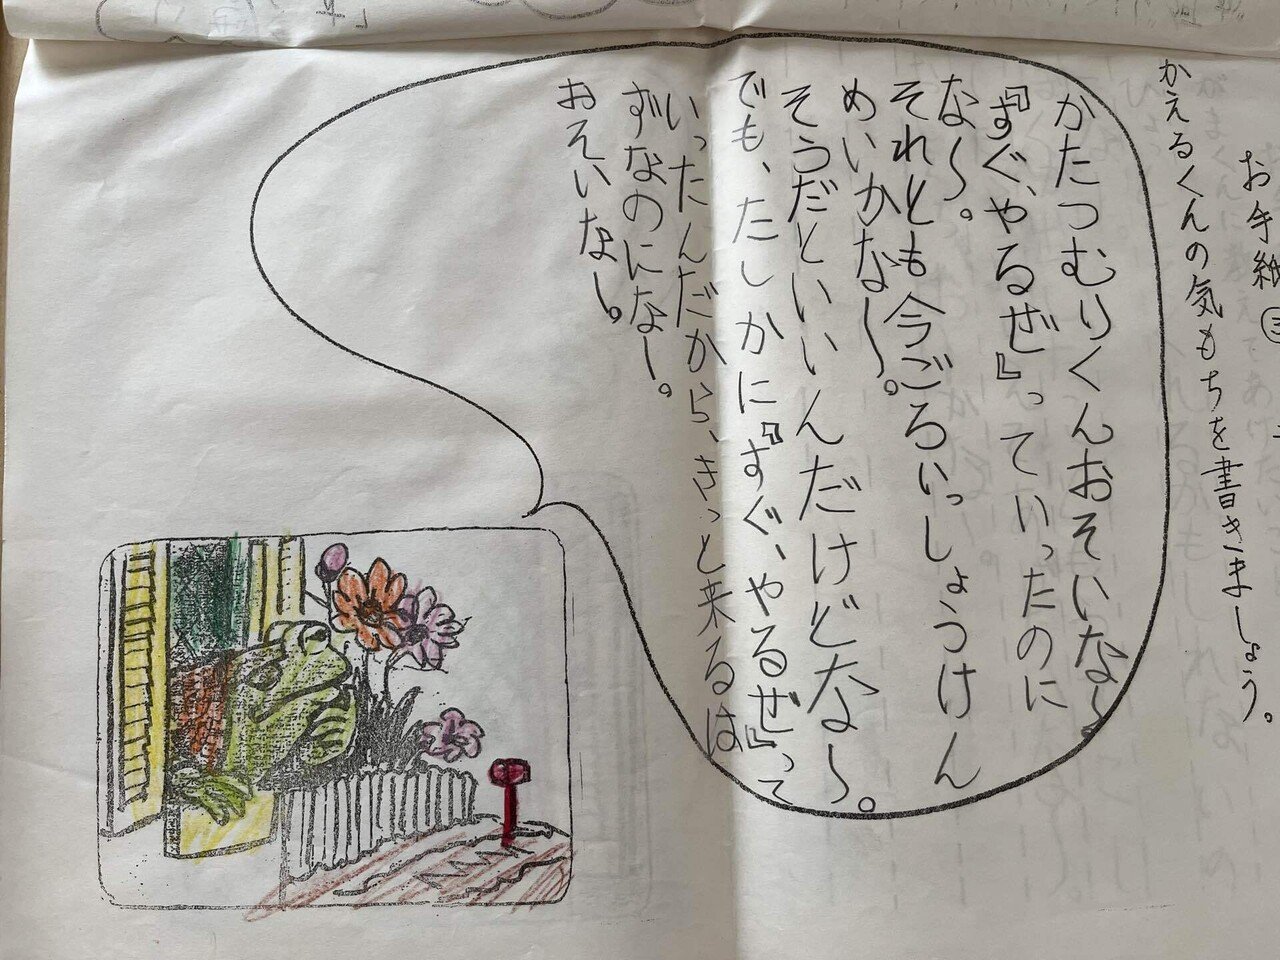 お手紙③
かえるくんの気もちを書きましょう。
かたつむりくんおそいな〜。
『すぐ、やるぜ』っていったのに
な〜。
それとも今ごろいっしょうけん
めいかな〜。
そうだといいんだけどな〜。
でも、たしかに『すぐ、やるぜ』って
いったんだから、きっと来るは
ずなのになー。
おそいなー。